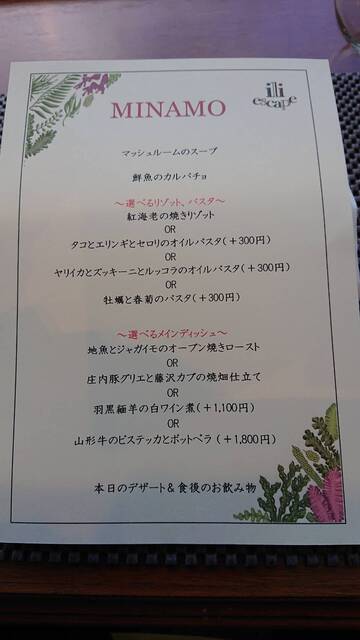 ili
escape
MINAMO
マッシュルームのスープ
鮮魚のカルパチョ
～選べるリゾット、パスタ～
紅海老の焼きリゾット
OR
タコとエリンギとセロリのオイルパスタ(＋300円)
OR
ヤリイカとズッキーニとルッコラのオイルパスタ(＋300円)
OR
牡蠣と春菊のパスタ(＋300円)
～選べるメインディッシュ～
地魚とジャガイモのオーブン焼きロースト
OR
庄内豚グリエと藤沢カブの焼畑仕立て
OR
羽黒緬羊の白ワイン煮(＋1,100円)
OR
山形牛のビステッカとポットベラ (＋1,800円)
本日のデザート＆食後のお飲み物